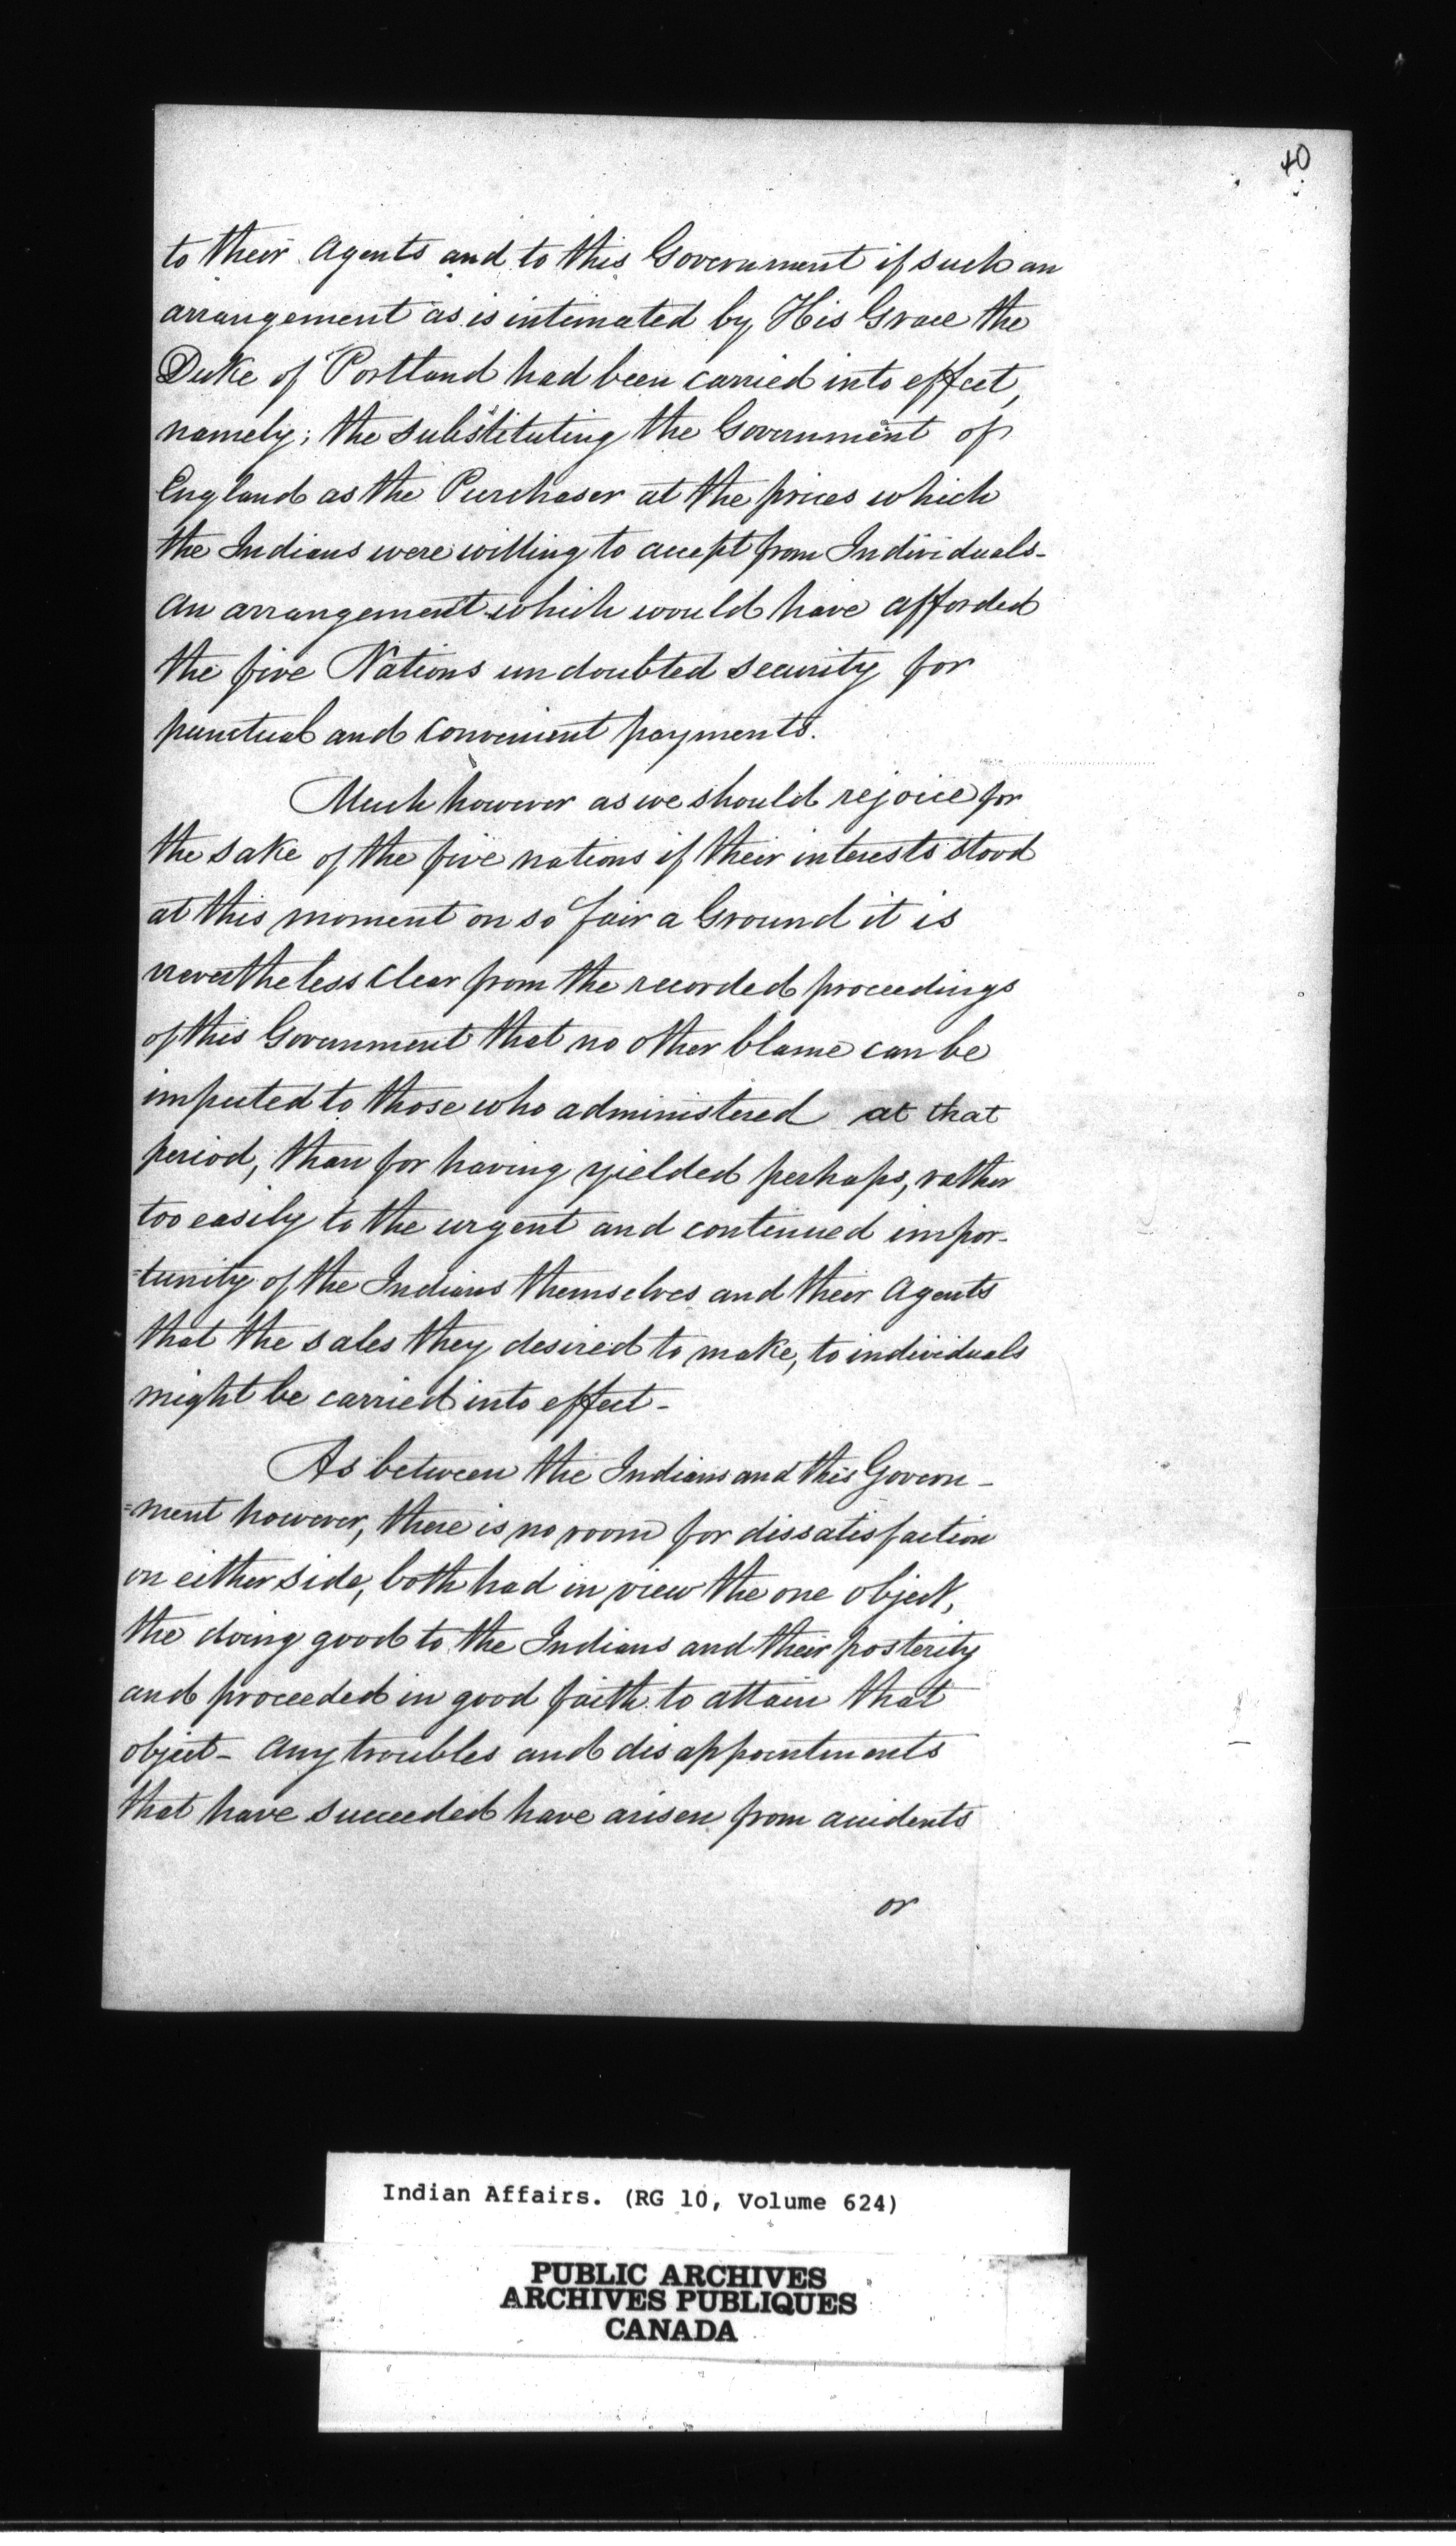 40
to their Agents and to this Government if such an
arrangement as is intimated by His Grace the
Duke of Portland had been carried into effect,
namely; the substituting the Government of
England as the Purchaser at the prices which
the Indians were willing to accept from Individuals-
An arrangement which would have afforded
the five Nations undoubted security for
punctual and convenient payments.
Much however as we should rejoice for
the sake of the five nations if their interests stood
at this moment on so fair a Ground it is
nevertheless clear from the recorded proceedings
of this Government that no other blame can be
imputed to those who administered at that
period, than for having yielded perhaps, rather
too easily to the urgent and continued impor-
=tunity of the Indians themselves and their Agents
that the sales they desired to make, to individuals
might be carried into effect-
As between the Indians and this Govern-
=ment however, there is no room for dissatisfaction
on either side, both had in view the one object,
the doing good to the Indians and their posterity
and proceeded in good faith to attain that
object- Any troubles and disappointments
that have succeeded have arisen from accidents
or
Indian Affairs. (RG 10, Volume 624)
PUBLIC ARCHIVES
ARCHIVES PUBLIQUES
CANADA